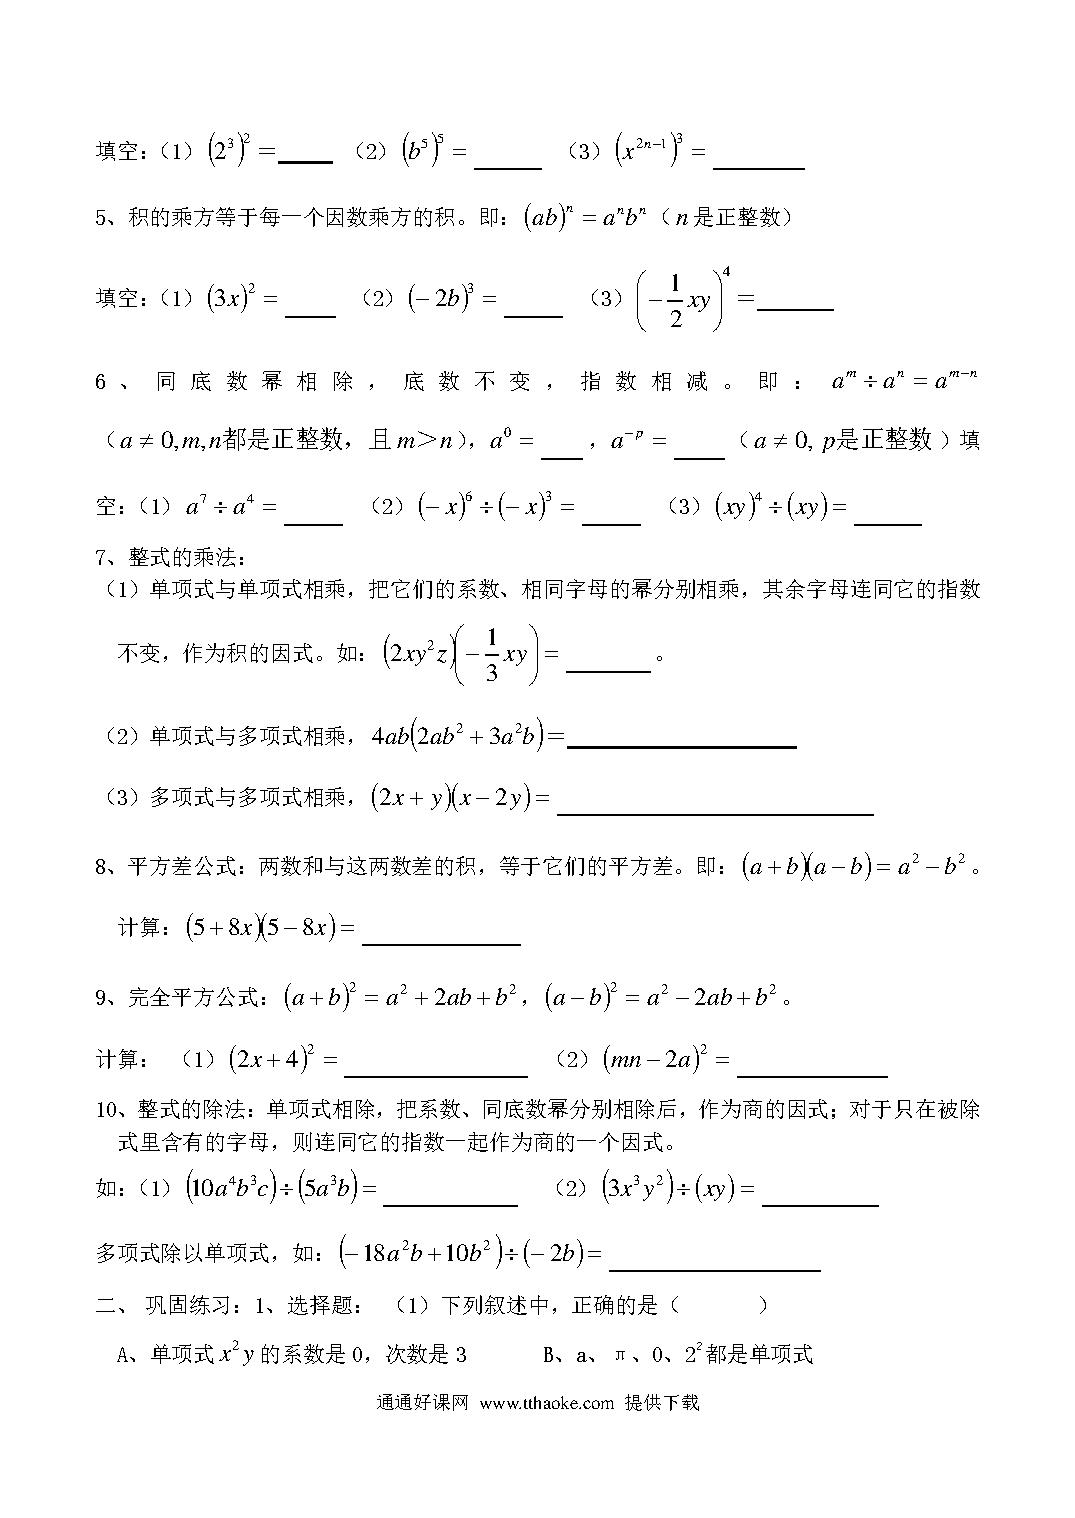 填空：（1） (2³)² ＝____ （2） (b⁵)⁵ = ____ （3） (x²ⁿ⁻¹)³ = ____
5、积的乘方等于每一个因数乘方的积。即：(ab)ⁿ = aⁿbⁿ（n是正整数）
填空：（1） (3x)² = ____ （2） (−2b)³ = ____ （3） (−1/2 xy)⁴ ＝____
6、同底数幂相除，底数不变，指数相减。即：aᵐ ÷ aⁿ = aᵐ⁻ⁿ
（a ≠ 0,m,n都是正整数，且m＞n），a⁰ = ____ ，a⁻ᵖ = ____ （a ≠ 0, p是正整数）填
空：（1） a⁷ ÷ a⁴ = ____ （2） (−x)⁶ ÷ (−x)³ = ____ （3） (xy)⁴ ÷ (xy) = ____
7、整式的乘法：
（1）单项式与单项式相乘，把它们的系数、相同字母的幂分别相乘，其余字母连同它的指数
不变，作为积的因式。如：(2xy²z)(−1/3 xy) = ____ 。
（2）单项式与多项式相乘，4ab(2ab² + 3a²b)＝____
（3）多项式与多项式相乘，(2x + y)(x − 2y) = ____
8、平方差公式：两数和与这两数差的积，等于它们的平方差。即：(a + b)(a − b) = a² − b² 。
计算：(5 + 8x)(5 − 8x) = ____
9、完全平方公式：(a + b)² = a² + 2ab + b²，(a − b)² = a² − 2ab + b² 。
计算： （1） (2x + 4)² = ____ （2） (mn − 2a)² = ____
10、整式的除法：单项式相除，把系数、同底数幂分别相除后，作为商的因式；对于只在被除
式里含有的字母，则连同它的指数一起作为商的一个因式。
如：（1） (10a⁴b³c) ÷ (5a³b) = ____ （2） (3x³y²) ÷ (xy) = ____
多项式除以单项式，如：(−18a²b + 10b²) ÷ (−2b) = ____
二、 巩固练习：1、选择题： （1）下列叙述中，正确的是（ ）
A、单项式 x²y 的系数是0，次数是3 B、a、π、0、2²都是单项式
通通好课网 www.tthaoke.com 提供下载